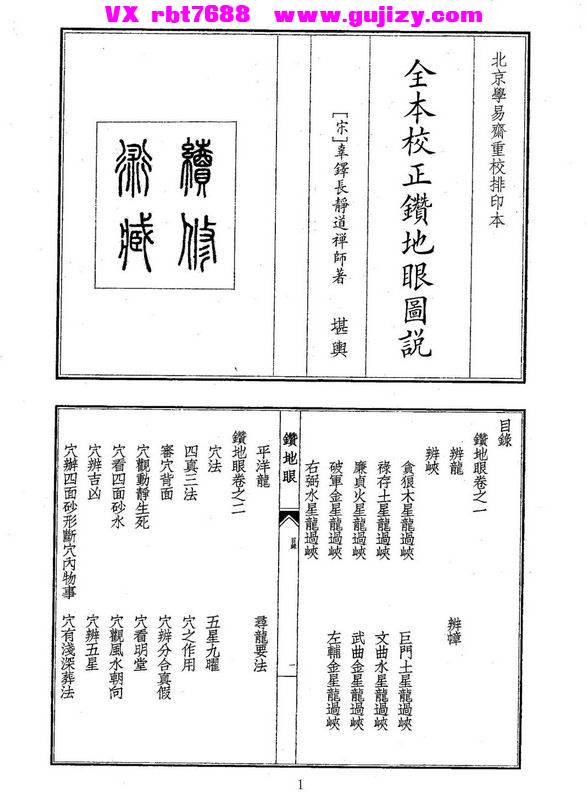 VX rbt7688 www.gujizy.com
北京學易齋重校排印本
全本校正鑽地眼圖説
[宋]辜鐸長靜道禪師著 堪輿
續修
術藏
目錄
鑽地眼卷之一
辨龍 辨幛
辨峽
貪狼木星龍過峽 巨門土星龍過峽
祿存土星龍過峽 文曲水星龍過峽
廉貞火星龍過峽 武曲金星龍過峽
破軍金星龍過峽 左輔金星龍過峽
右弼水星龍過峽
鑽地眼 目錄 一
平洋龍 尋龍要法
鑽地眼卷之二
穴法 五星九曜
四真三法 穴之作用
審穴背面 穴辨分合真假
穴觀動靜生死 穴看明堂
穴看四面砂水 穴觀風水朝向
穴辨吉凶 穴辨五星
穴辦四面砂形斷穴內物事 穴有淺深葬法
1